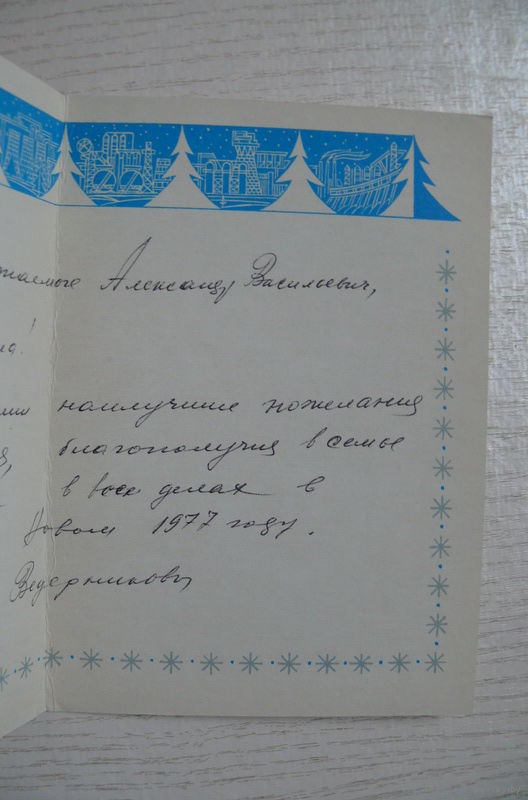 Александр Васильевич,
!
наилучшие пожелания
благополучия в семье
в всех делах в
Новом 1977 году.
Ведерниковы